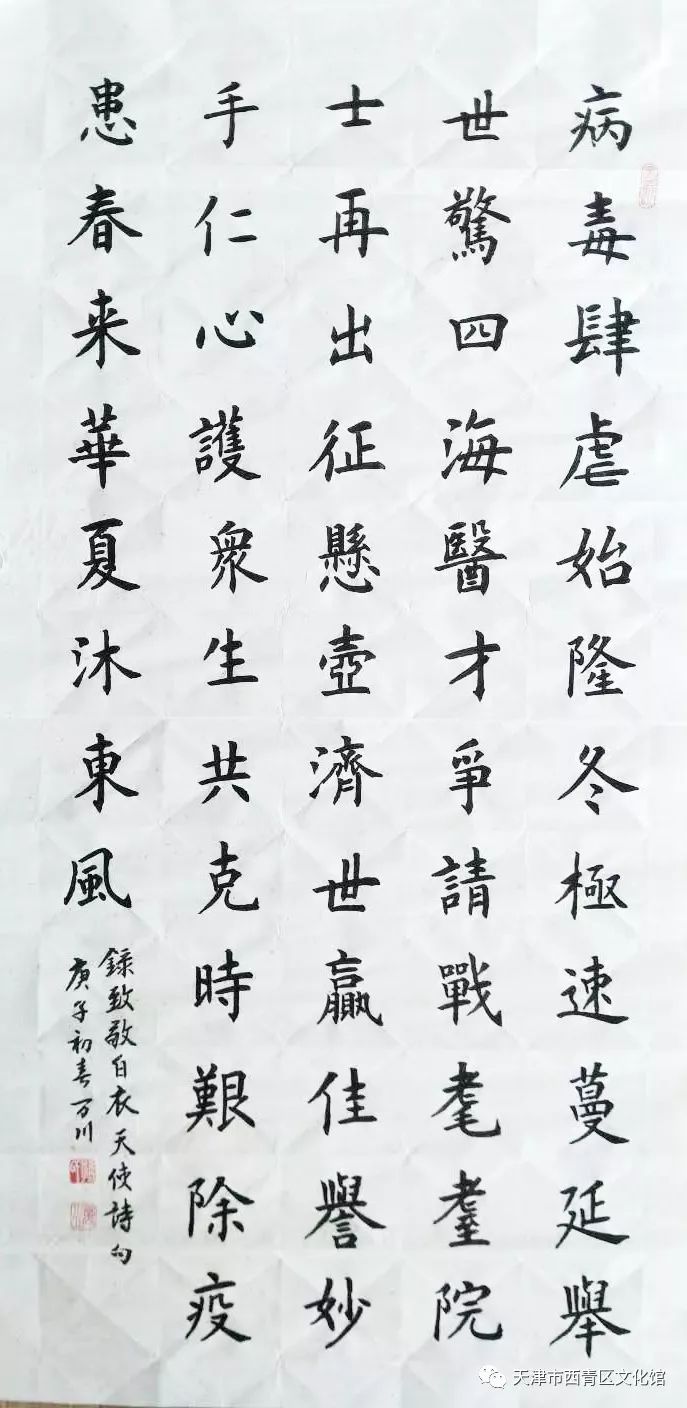 病毒肆虐始隆冬極速蔓延舉
世驚四海醫才爭請戰耄耋院
士再出征懸壺濟世贏佳譽妙
手仁心護衆生共克時艱除疫
患春来華夏沐東風
録致敬白衣天使詩句
庚子初春万川
天津市西青区文化馆